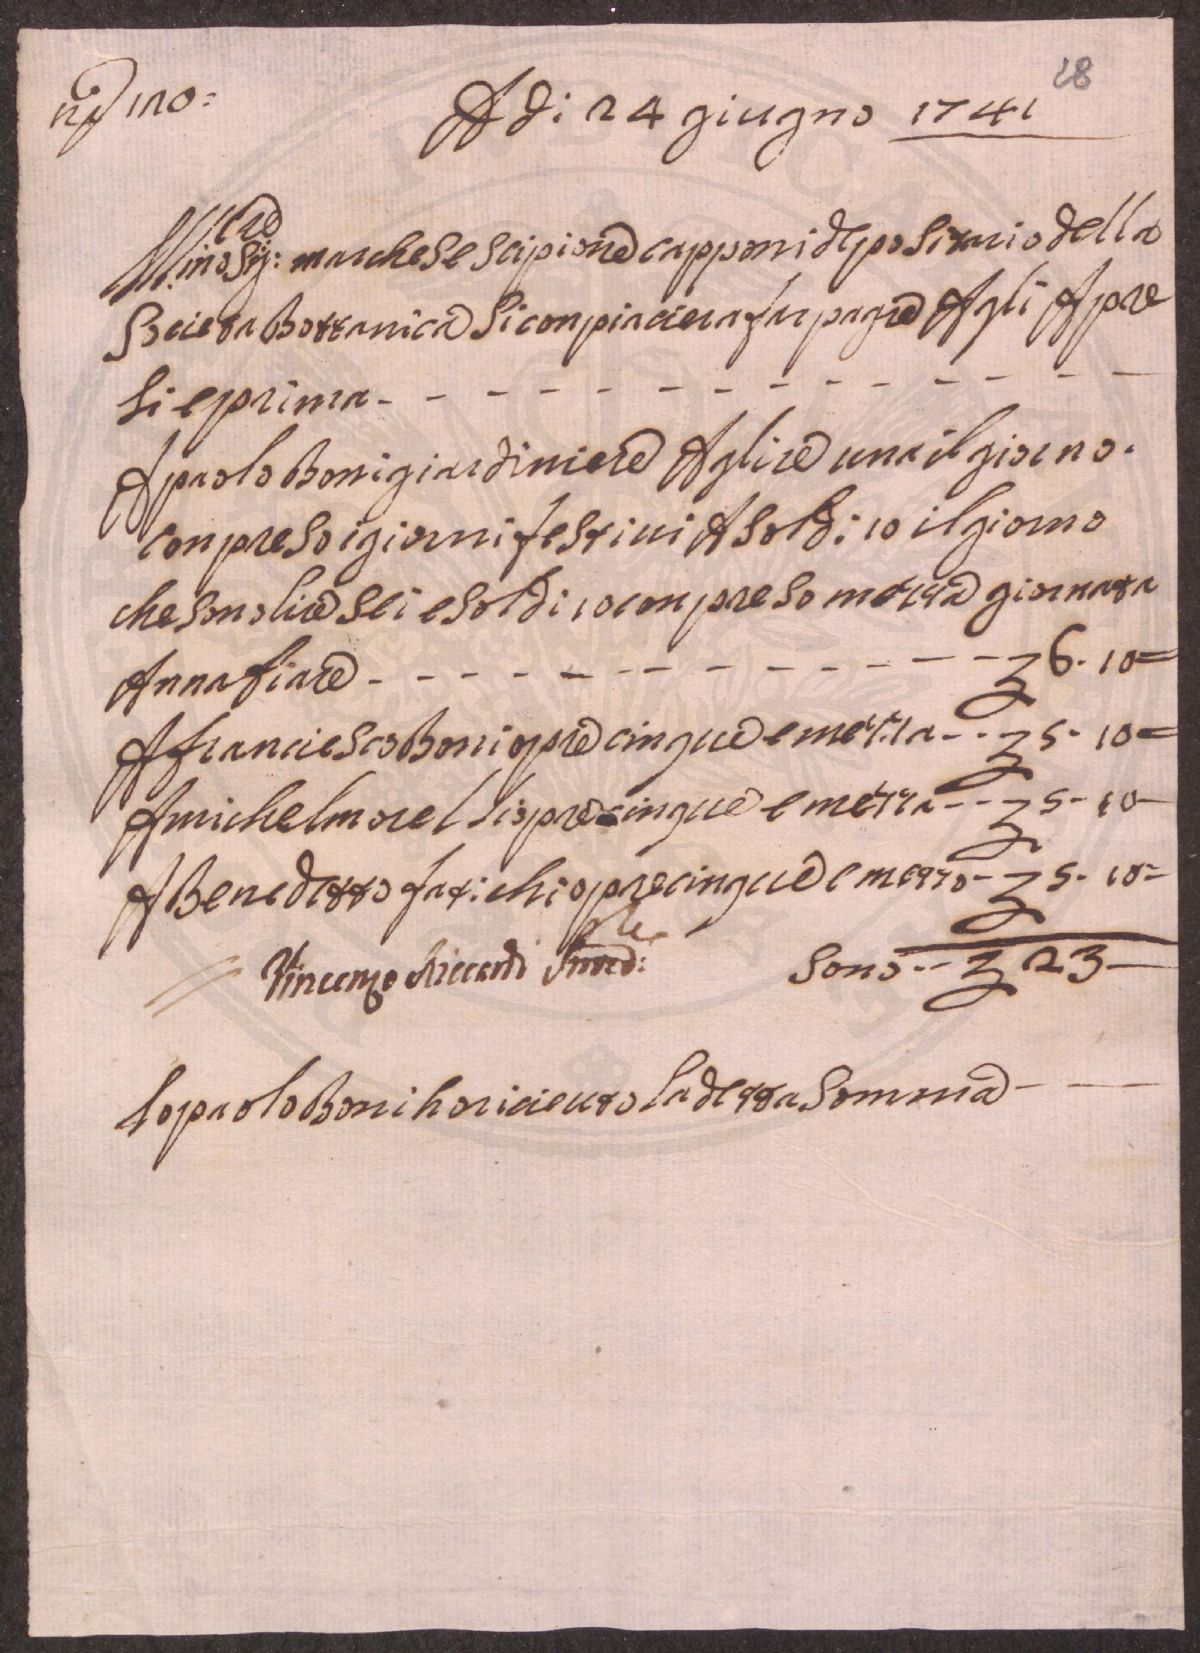 18
n° 110:
A di 24 giugno 1741
Ill.mo Sig: marchese scipione capponi depositario della
Societa Bottanica Si conpiaciera far pagre Agli Apre
Si e prima - - - - - - - - - - - - -
A paolo Boni giardiniere A glire una il giorno.
conpreso i giorni festiui A soldi 10 il giorno
che sono lire sei e soldi 10 conpreso mezza giornata
Annafiare - - - - - - - - - - - - 6. 10=
A franciesco Boni opre cinque e mezza - - 5. 10=
A michel morelli opre cinque e mezza - - 5. 10-
A Benedetto fatichi opre cinque e mezzo - 5. 10=
Vincenzo Riccardi
Sono - - 23 -
Io paolo Boni ho riceuto la detta Somma - -